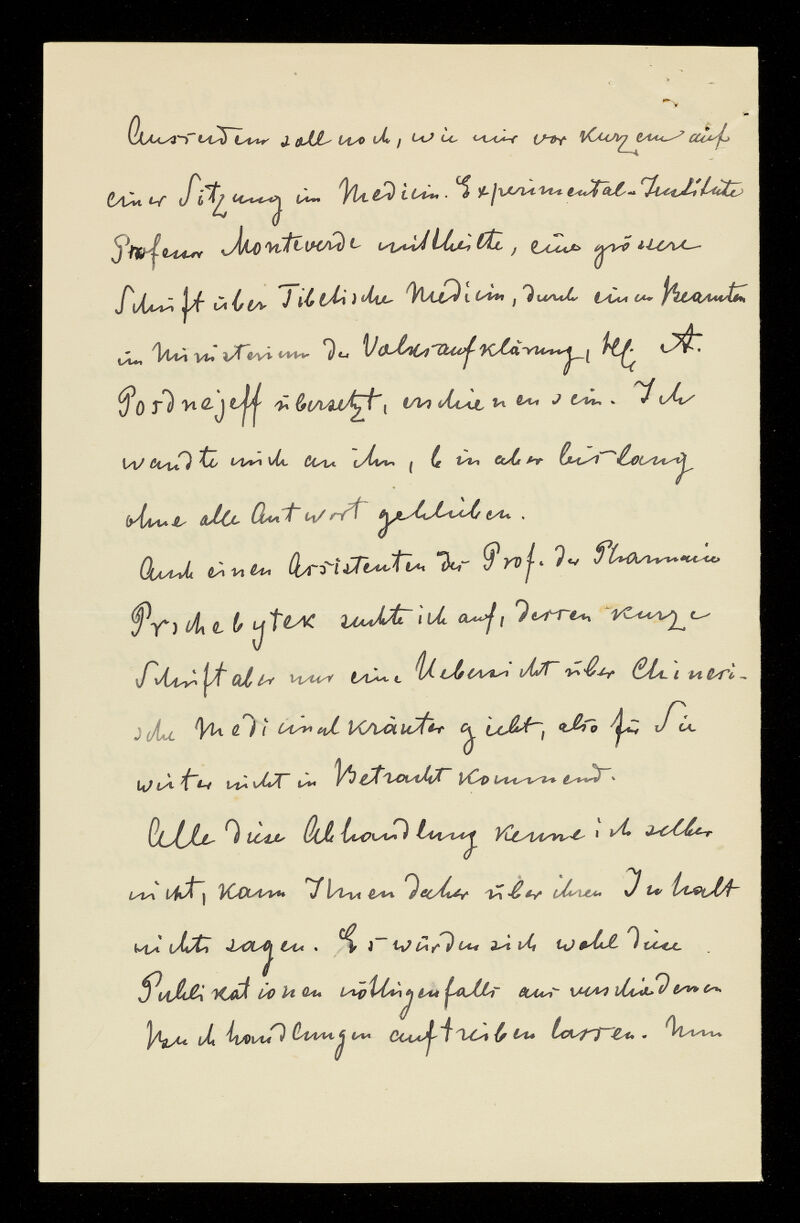 Ausserdem soll noch, wie mir vor kurzem auf
einer Sitzung im Medicin. Experimental-Institute
Professor Monteverde mittheilte, eine grössere
Schrift über Tibetische Medicin, durch einen Beamten
im Ministerium der Volksaufklärung, A.
Posdnejeff übersetzt, erschienen sein. Ich
wandte mich an ihn, bin aber bislang
ohne alle Antwort geblieben.
Auch einen Assistenten des Prof. der Pharmacie
Prschebytek suchte ich auf, dessen kurze
Schrift aber nur eine Uebersicht über Chinesi-
sche Medicinalkräuter giebt, also für Sie
weiter nicht in Betracht kommend.
Alle diese Abhandlung kenne ich selber
nicht, kann Ihnen daher über ihren Inhalt
nichts sagen. Es würden sich wohl diese
Publikationen nöthigenfalls aus verschiedenen
Buchhandlungen auftreiben lassen. Nun